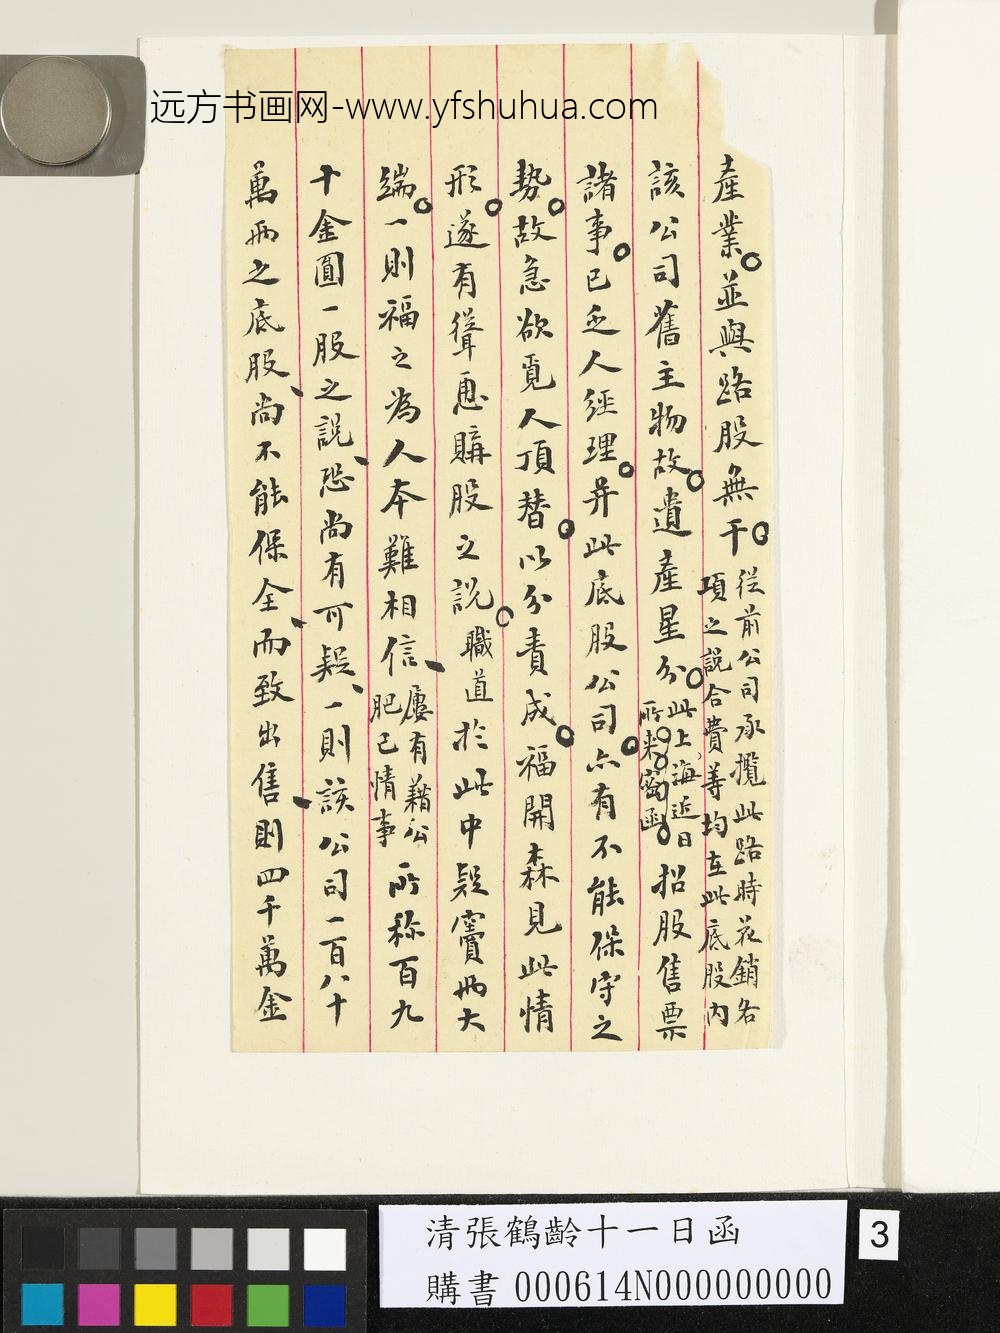 远方书画网-www.yfshuhua.com
產業並與路股無干從前公司承攬此路時花銷各
項之說合費等均在此底股內
該公司舊主物故遺產星分此上海近日
所來密函招股售票
諸事已乏人經理并此底股公司亦有不能保守之
勢故急欲覓人頂替以分責成福開森見此情
形遂有聳恿購股之說職道於此中疑竇兩大
端一則福之為人本難相信屢有藉公
肥己情事所称百九
十金圓一股之說恐尚有可疑一則該公司一百八十
萬兩之底股尚不能保全而致出售則四千萬金
清張鶴齡十一日函
購書 000614N000000000
3